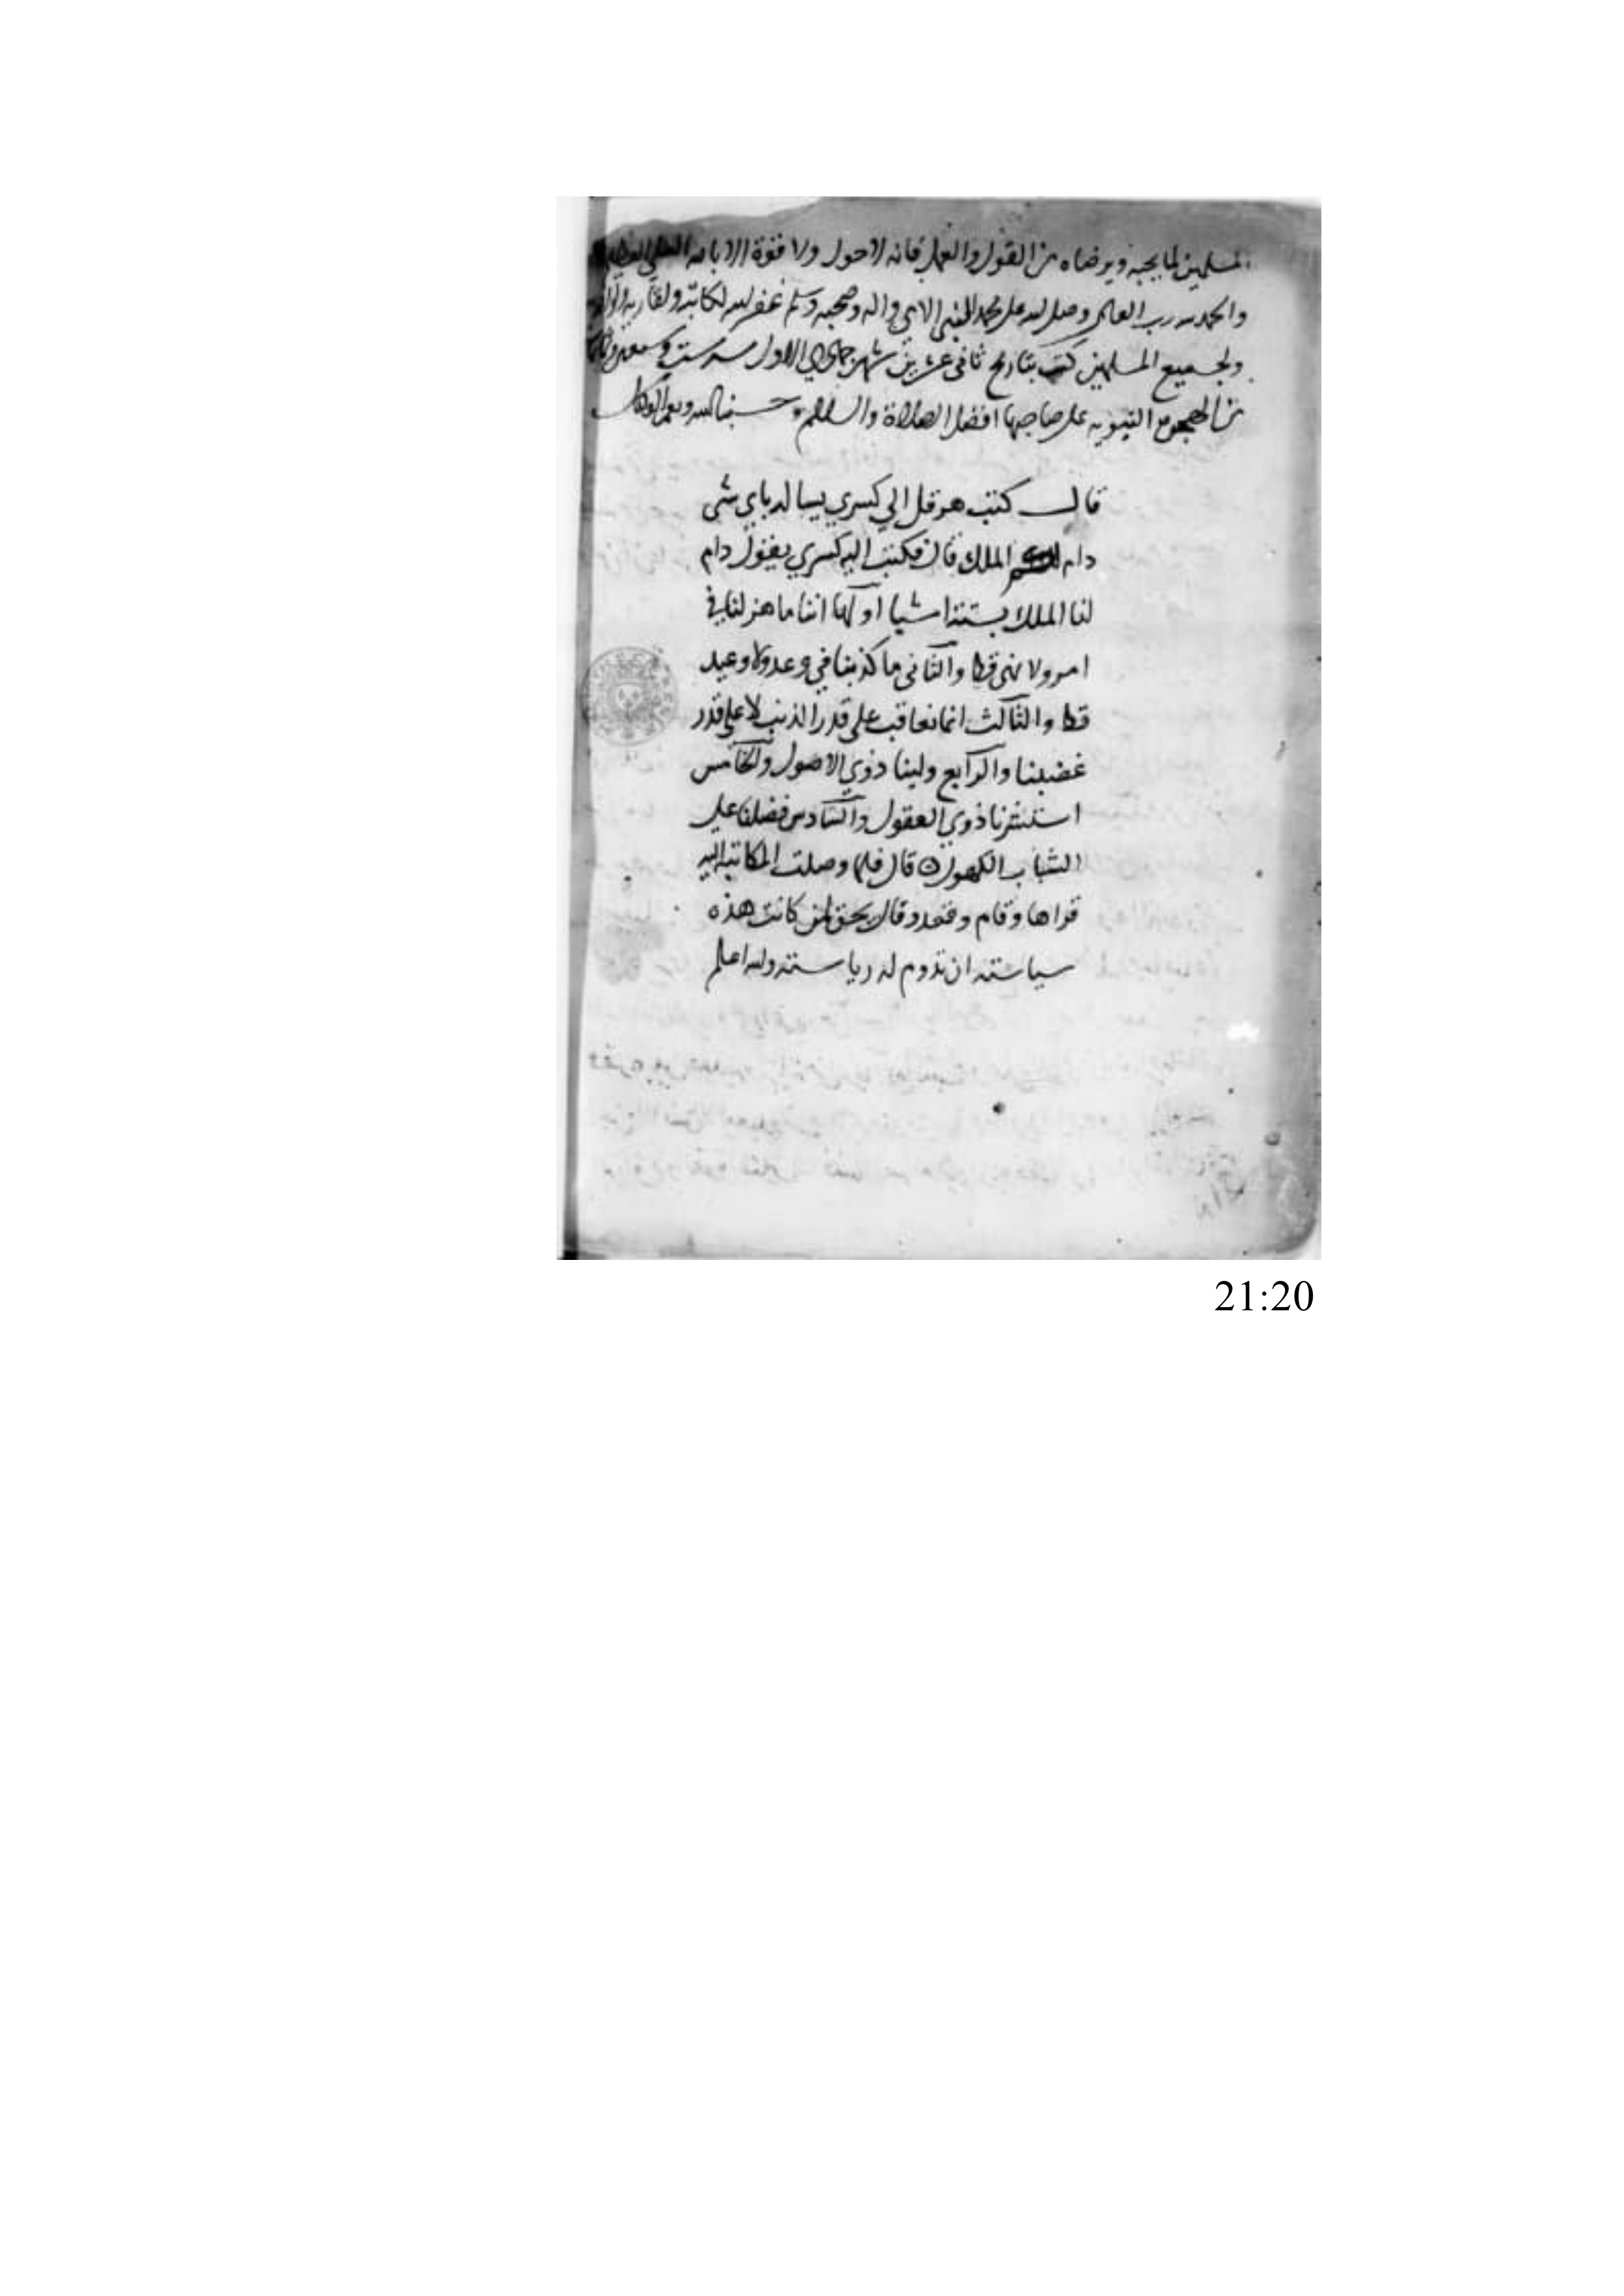 المسلمين لما يحبه ويرضاه من القول والعمل فانه لا حول ولا قوة الا بالله العلي العظيم
والحمد لله رب العالمين وصلى الله على محمد النبي الامي واله وصحبه وسلم غفر الله لكاتبه ولقاريه
ولجميع المسلمين كتب بتاريخ ثاني عشرين شهر جمادي الاول سنة ست وسبعين
من الهجرة النبوية على صاحبها افضل الصلاة والسلام حسبنا الله ونعم الوكيل
قال كتب هرقل الي كسري يساله باي شي
دام الملك قال فكتب اليه كسري يقول دام
لنا الملك بستة اشيا اولها اننا ما هزلنا في
امر ولا نهي قط والثاني ما كذبنا في وعد ولا وعيد
قط والثالث انما نعاقب على قدر الذنب لا على قدر
غضبنا والرابع ولينا ذوي الاصول والخامس
استشرنا ذوي العقول والسادس فضلنا على
الشباب الكهول قال فلما وصلت المكاتبة اليه
قراها وقام وقعد وقال بحق لمن كانت هذه
سياسته ان تدوم له رياسته والله اعلم
21:20